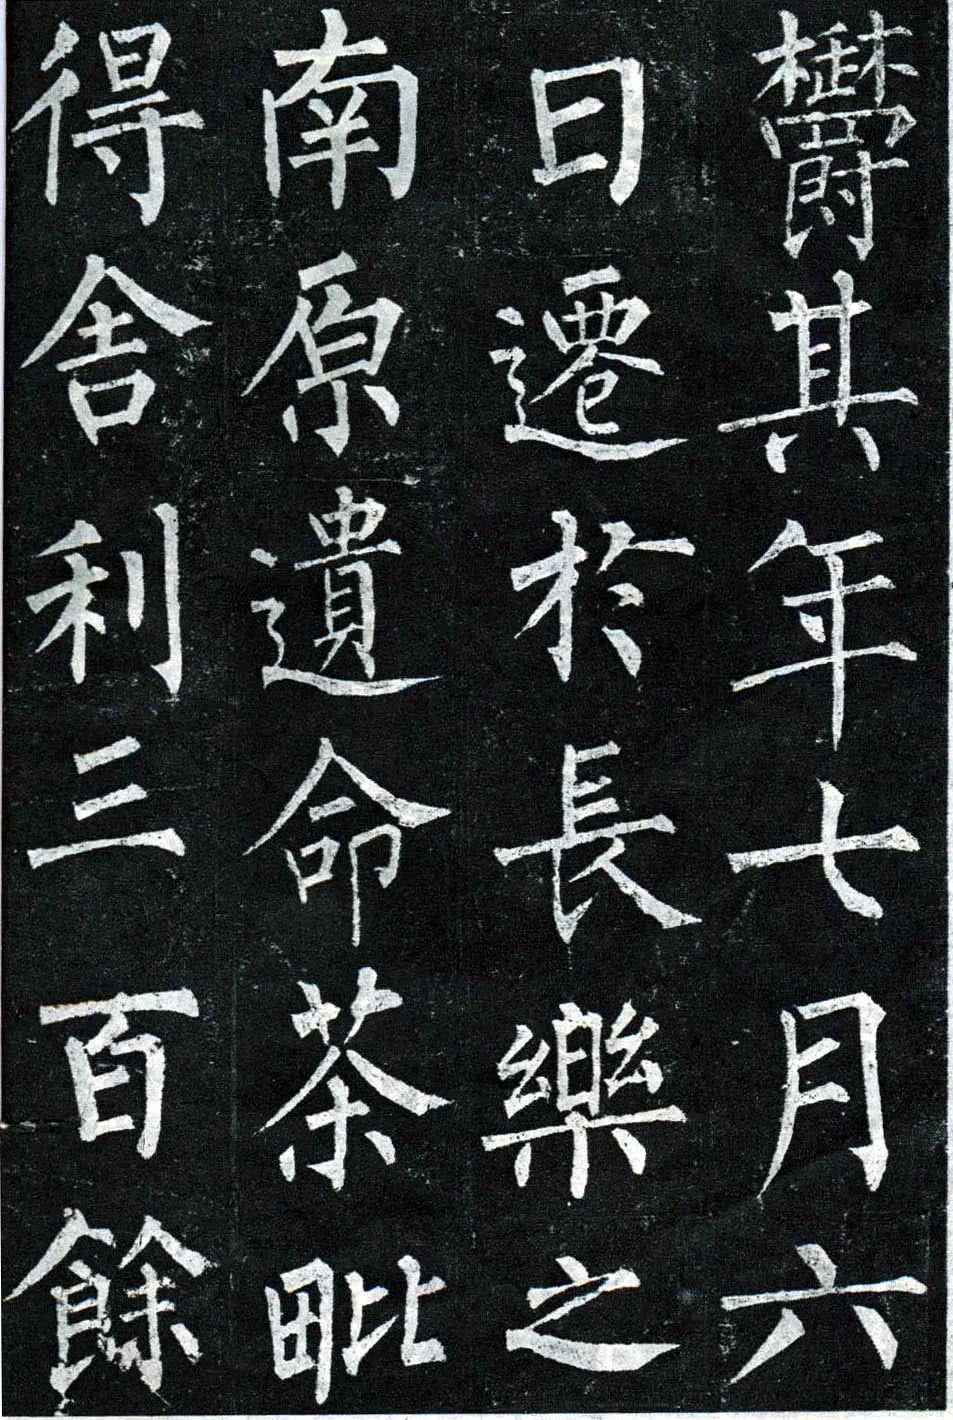 鬱其年七月六
日遷於長樂之
南原遺命茶毗
得舍利三百餘